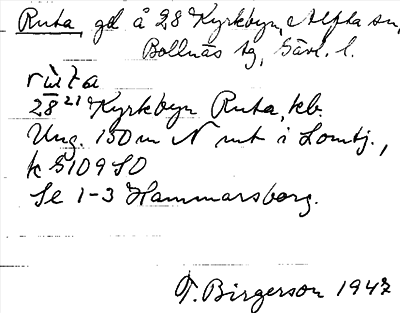 Ruta, gd å 28 Kyrkbyn, Alfta sn,
Bollnäs tg, Gävl. l.
rùta
28²¹ Kyrkbyn Ruta, kb.
Ung. 150 m N mt i Lomtj.,
k S109 SO
Se 1-3 Hammarsberg.
T. Birgerson 1947